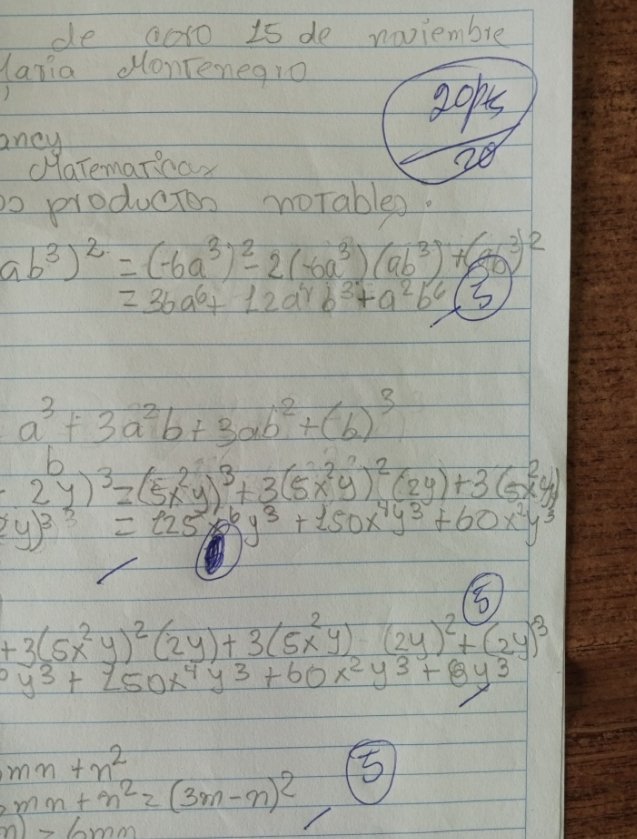 de 15 de noviembre
Maria Montenegro
20pts
20
ancy
Matematicas
os productos notables.
ab³)² = (-6a³)² - 2(-6a³)(ab³) + (ab³)²
= 36a⁶ + 12a⁴b³ + a²b⁶ 5
a³ + 3a²b + 3ab² + (b)³
b
2y)³ = (5x²y)³ + 3(5x²y)²(2y) + 3(5x²y)
2y)³ = 125x⁶y³ + 150x⁴y³ + 60x²y³
5
+3(5x²y)²(2y) + 3(5x²y) (2y)² + (2y)³
y³ + 150x⁴y³ + 60x²y³ + 8y³
mn + n² 5
mn + n² = (3m - n)²
n) = 6mn